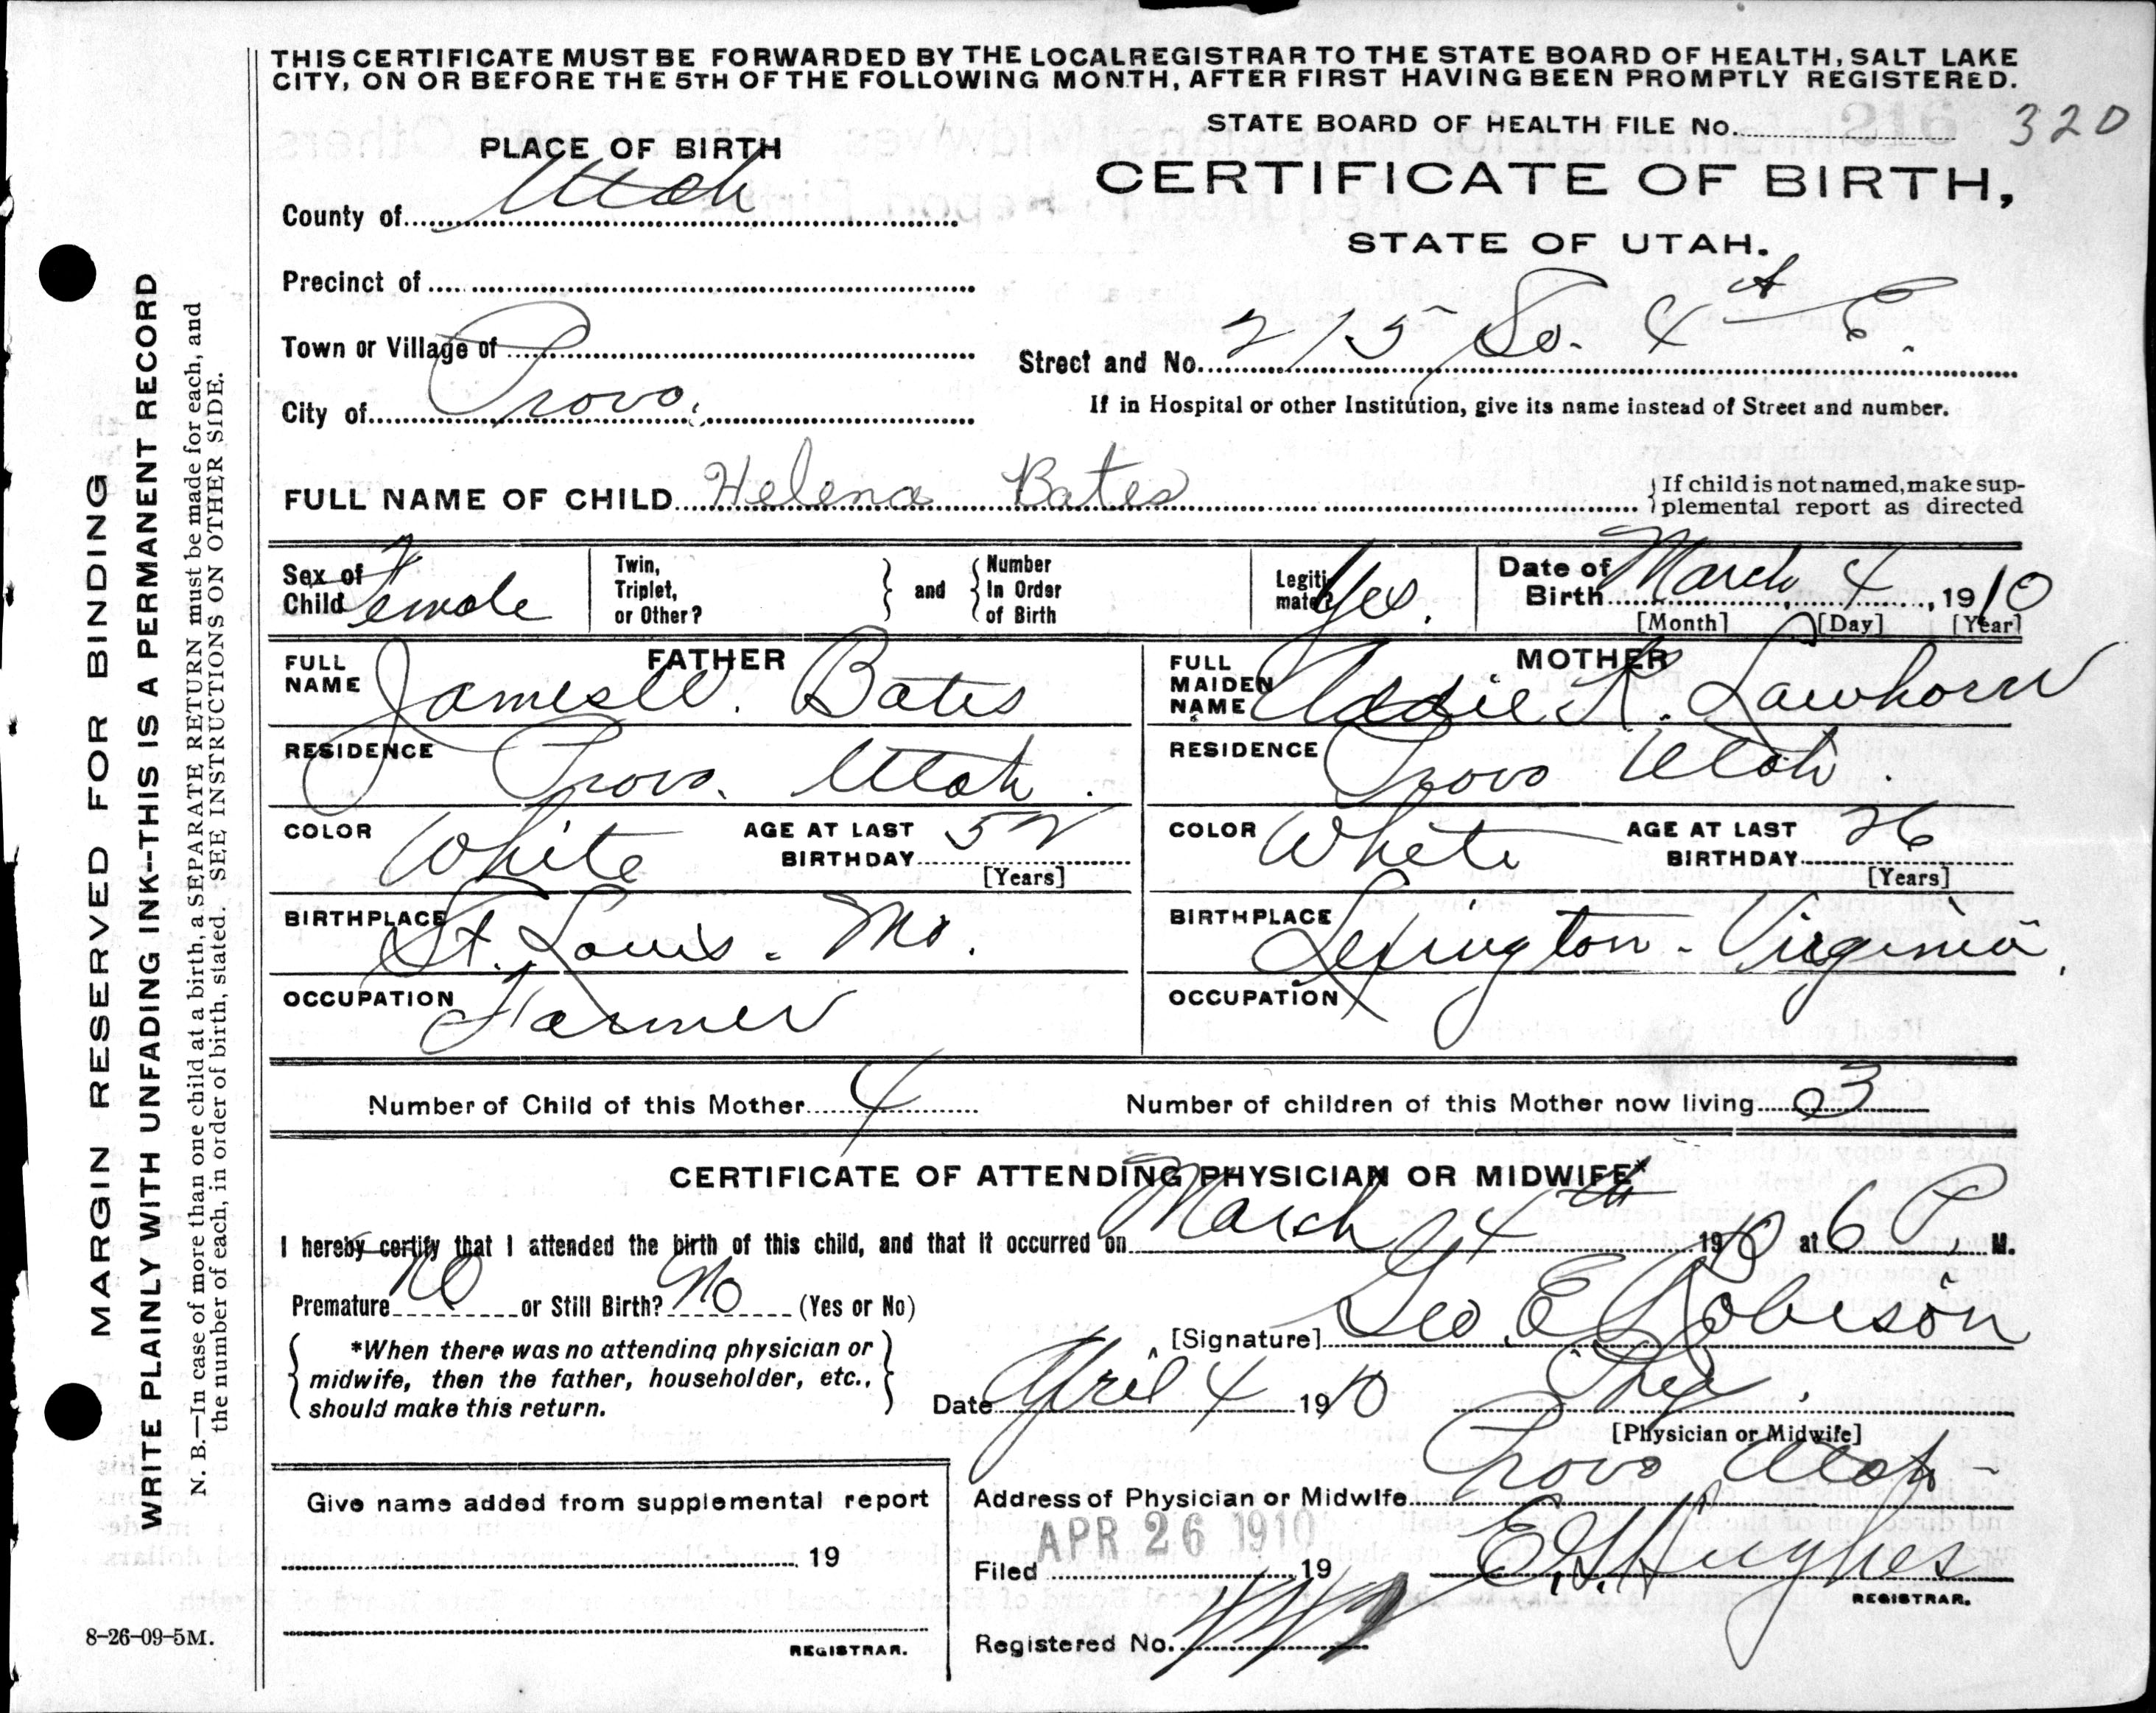 THIS CERTIFICATE MUST BE FORWARDED BY THE LOCAL REGISTRAR TO THE STATE BOARD OF HEALTH, SALT LAKE
CITY, ON OR BEFORE THE 5TH OF THE FOLLOWING MONTH, AFTER FIRST HAVING BEEN PROMPTLY REGISTERED.
STATE BOARD OF HEALTH FILE No. 320
PLACE OF BIRTH
CERTIFICATE OF BIRTH,
STATE OF UTAH.
County of Utah
Precinct of
Town or Village of
Street and No. 215 So. 4th E.
City of Provo.
If in Hospital or other Institution, give its name instead of Street and number.
FULL NAME OF CHILD Helena Bates
If child is not named, make sup-
plemental report as directed
Sex of Child Female
Twin, Triplet, or Other?
and
Number In Order of Birth
Legiti-mate? Yes.
Date of Birth March 4, 1910
[Month] [Day] [Year]
FATHER
FULL NAME James W. Bates
RESIDENCE Provo. Utah.
COLOR White AGE AT LAST BIRTHDAY 52
[Years]
BIRTHPLACE St. Louis. Mo.
OCCUPATION Farmer
MOTHER
FULL MAIDEN NAME Addie R. Lawhorn
RESIDENCE Provo Utah.
COLOR White AGE AT LAST BIRTHDAY 26
[Years]
BIRTHPLACE Lexington - Virginia.
OCCUPATION
Number of Child of this Mother 4
Number of children of this Mother now living 3
CERTIFICATE OF ATTENDING PHYSICIAN OR MIDWIFE*
I hereby certify that I attended the birth of this child, and that it occurred on March 4th 1910 at 6 P. M.
Premature No or Still Birth? No (Yes or No)
*When there was no attending physician or
midwife, then the father, householder, etc.,
should make this return.
[Signature] Geo E Robison
Date April 4 1910 Phy.
[Physician or Midwife]
Address of Physician or Midwife Provo Utah-
Give name added from supplemental report
19
REGISTRAR.
APR 26 1910
Filed 19 E.G. Hughes
REGISTRAR.
Registered No.
8-26-09-5M.
MARGIN RESERVED FOR BINDING
WRITE PLAINLY WITH UNFADING INK--THIS IS A PERMANENT RECORD
N. B.—In case of more than one child at a birth, a SEPARATE RETURN must be made for each, and
the number of each, in order of birth, stated. SEE INSTRUCTIONS ON OTHER SIDE.